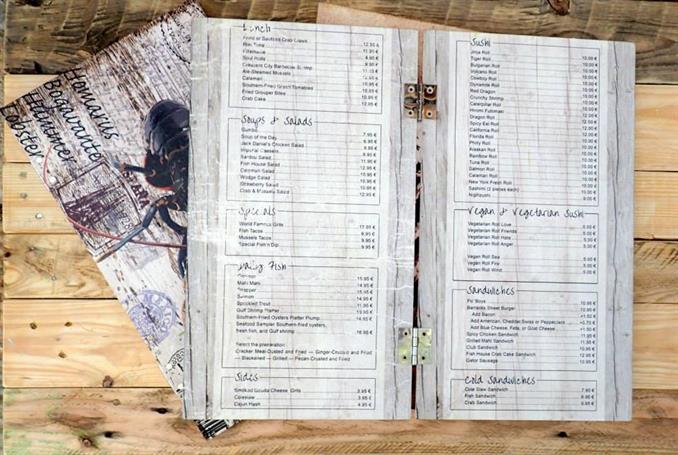 Homarus
Bogavante
Hummer
Lobster
Lunch
Fried or Sautéed Crab Claws 12.95 €
Ahi Tuna 11.95 €
Soul Rolls 9.95 €
Crescent City Barbecue Shrimp
Ale-Steamed Mussels
Calamari
Southern-Fried Green Tomatoes 10.95 €
Fried Grouper Bites 10.95 €
Crab Cake 12.95 €
Soups & Salads
Gumbo 7.95 €
Soup of the Day 6.95 €
Jack Daniel's Chicken Salad 9.95 €
Imperial Caesars 8.95 €
Sardou Salad 11.95 €
Fish House Salad 12.95 €
Calamari Salad 13.95 €
Wedge Salad 10.95 €
Strawberry Salad 10.95 €
Crab & Mango Salad 12.95 €
Specials
World Famous Grits 17.95 €
Fish Tacos 9.95 €
Mussels Tacos 9.95 €
Special Fish'n Dip 9.95 €
Daily Fish
Mahi Mahi 14.95 €
Snapper 15.95 €
Salmon 14.95 €
Speckled Trout 11.95 €
Gulf Shrimp Platter 13.95 €
Southern-Fried Oysters Platter Plump 14.95 €
Seafood Sampler Southern-fried oysters,
fresh fish, and Gulf shrimp 16.95 €
Select the preparation:
Cracker Meal-Dusted and Fried — Ginger-Crusted and Fried
— Blackened — Grilled — Pecan-Crusted and Fried
Sides
Smoked Gouda Cheese Grits 3.95 €
Coleslaw 3.95 €
Cajun Hash 4.95 €
Sushi
Ninja Roll
Tiger Roll 10.00 €
Bulgarian Roll 10.00 €
Volcano Roll 10.00 €
Cowboy Roll 10.00 €
Dynamite Roll 10.00 €
Red Dragon 10.00 €
Crunchy Shrimp 10.00 €
Caterpillar Roll 10.00 €
Hiromi Futomaki 10.00 €
Dragon Roll 12.00 €
Spicy Eel Roll 12.00 €
California Roll 12.00 €
Florida Roll 10.00 €
Philly Roll 10.00 €
Alaskan Roll 10.00 €
Rainbow Roll 10.00 €
Tuna Roll 10.00 €
Salmon Roll 10.00 €
Calamari Roll 10.00 €
New York Fresh Roll 10.00 €
Sashimi (2 pieces each) 10.00 €
Nigihsushi 9.00 €
Vegan & Vegetarian Sushi
Vegetarian Roll Love 5.00 €
Vegetarian Roll Friends 5.00 €
Vegetarian Roll Hate 5.00 €
Vegetarian Roll Anger 5.00 €
Vegan Roll Sea 5.00 €
Vegan Roll Fire 5.00 €
Vegan Roll Wind 5.00 €
Sandwiches
Po' Boys 10.95 €
Barracks Street Burger 10.95 €
Add Bacon +1.50 €
Add American, Cheddar, Swiss or Pepperjack +0.75 €
Add Blue Cheese, Feta, or Goat Cheese +1.50 €
Spicy Chicken Sandwich 11.95 €
Grilled Mahi Sandwich 11.95 €
Club Sandwich 10.95 €
Fish House Crab Cake Sandwich 12.95 €
Gator Sausage 10.95 €
Cold Sandwiches
Cole Slaw Sandwich 7.95 €
Fish Sandwich 8.95 €
Crab Sandwich 9.95 €